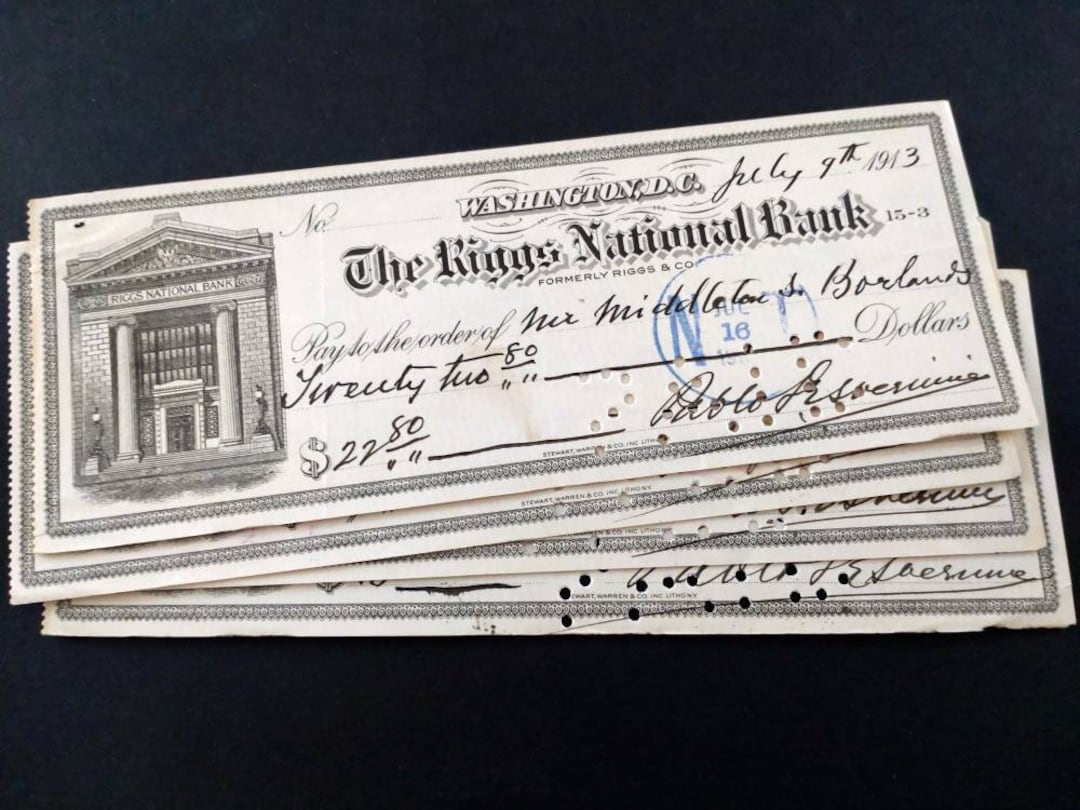 No. WASHINGTON, D.C. July 9th 1913
The Riggs National Bank 15-3
FORMERLY RIGGS & CO.
RIGGS NATIONAL BANK
Pay to the order of Mr Middleton S. Borlands
Twenty two 80 " " Dollars
N JUL
16
Pablo
$22 80 " "
STEWART, WARREN & CO. INC. LITH
STEWART, WARREN & CO. INC. LITHO. N.Y.
& CO. INC. LITHO
WART, WARREN & CO. INC. LITHO. N.Y.